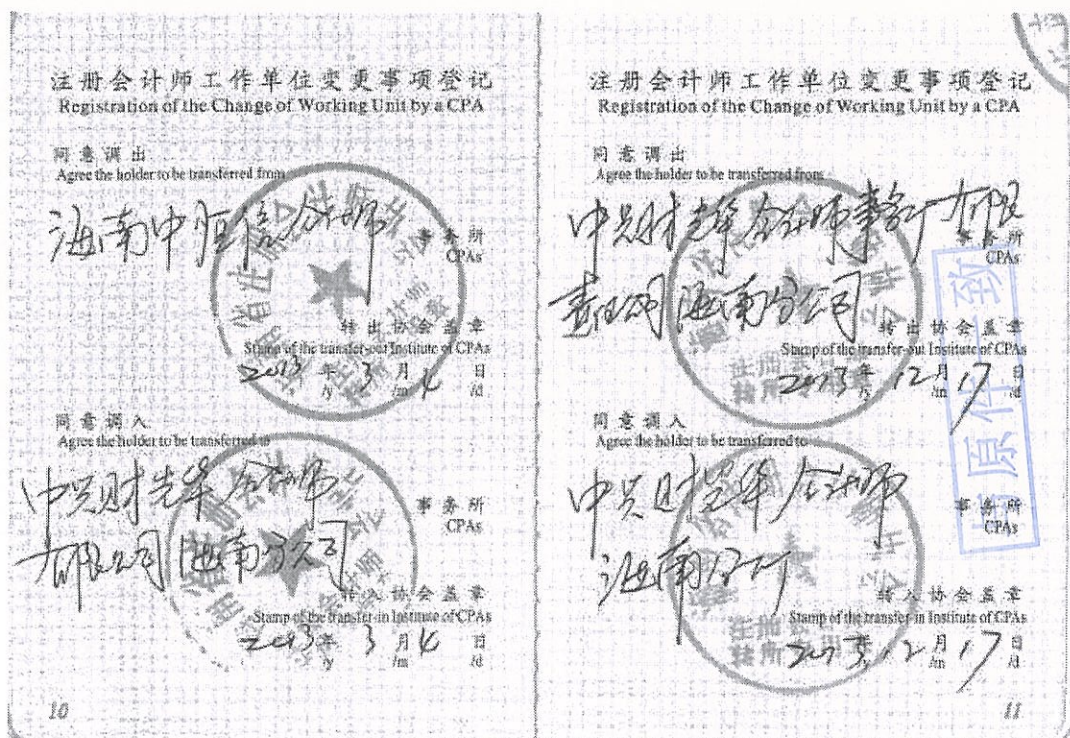 注册会计师工作单位变更事项登记
Registration of the Change of Working Unit by a CPA
同意调出
Agree the holder to be transferred from
海南中恒信会计师
事务所
CPAs
转出协会盖章
Stamp of the transfer-out Institute of CPAs
2013年3月4日
/y /m /d
同意调入
Agree the holder to be transferred to
中兴财光华会计师
事务所
CPAs
有限公司海南分公司
转入协会盖章
Stamp of the transfer-in Institute of CPAs
2013年3月4日
/y /m /d
10
注册会计师工作单位变更事项登记
Registration of the Change of Working Unit by a CPA
同意调出
Agree the holder to be transferred from
中兴财光华会计师事务所有限
事务所
CPAs
责任公司海南分公司
转出协会盖章
Stamp of the transfer-out Institute of CPAs
2013年12月17日
/y /m /d
同意调入
Agree the holder to be transferred to
中兴财光华会计师
事务所
CPAs
海南分所
转入协会盖章
Stamp of the transfer-in Institute of CPAs
2013年12月17日
/y /m /d
11
与原件一致